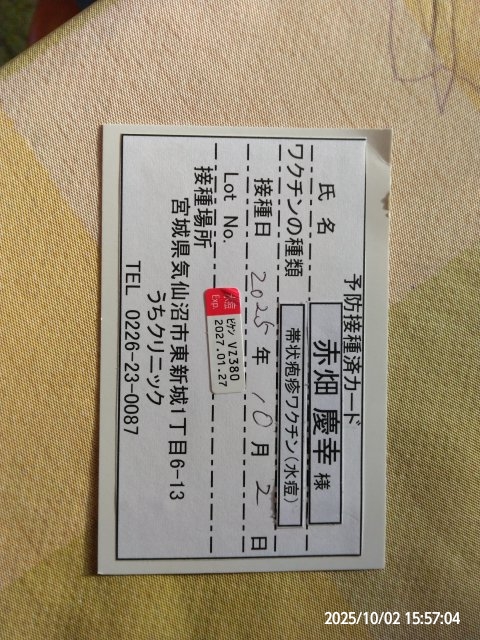 予防接種済カード
氏 名 赤畑 慶幸 様
ワクチンの種類 帯状疱疹ワクチン(水痘)
接種日 2025年 10月 2日
Lot No. 水痘 ビケン VZ380
Exp. 2027.01.27
接種場所
宮城県気仙沼市東新城1丁目6-13
うちクリニック
TEL 0226-23-0087
2025/10/02 15:57:04